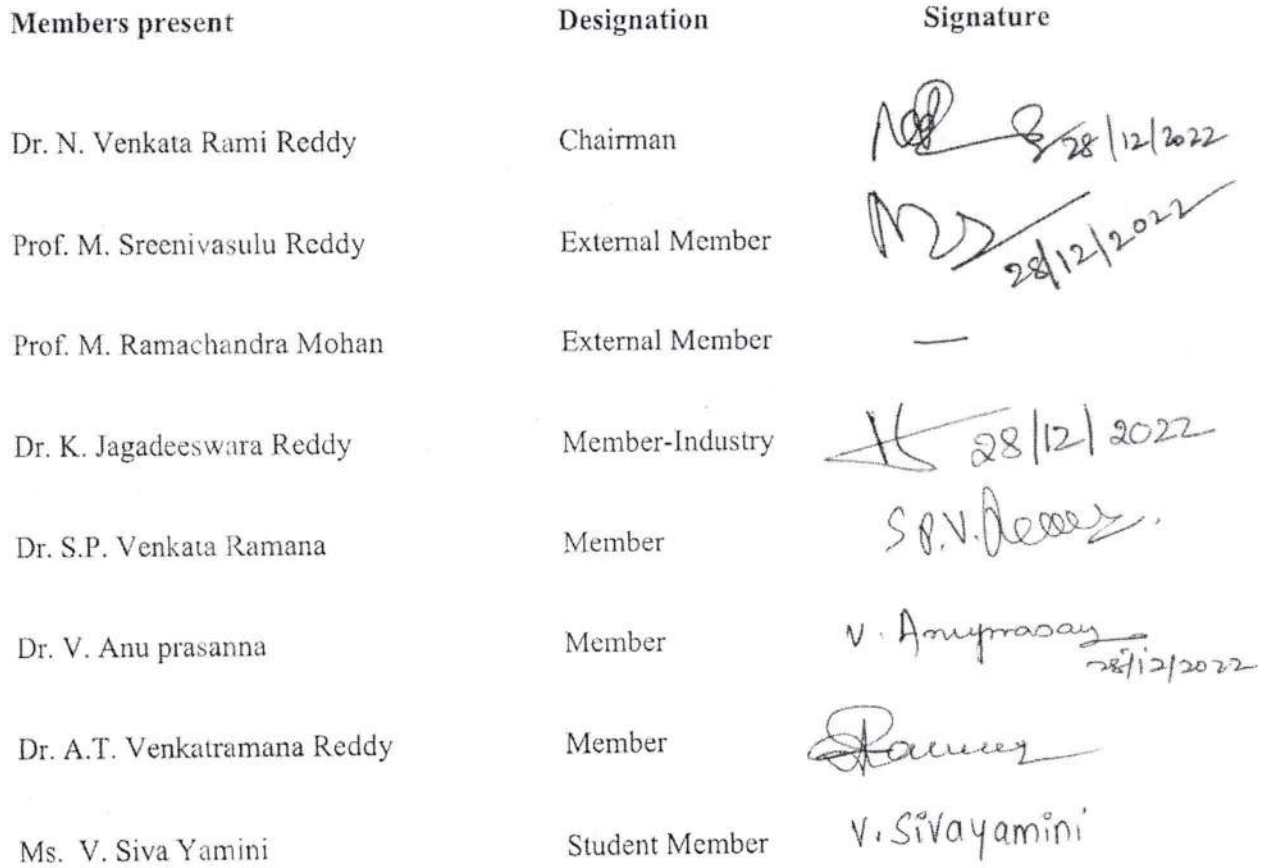 Members present Designation Signature
Dr. N. Venkata Rami Reddy Chairman 28/12/2022
Prof. M. Sreenivasulu Reddy External Member 28/12/2022
Prof. M. Ramachandra Mohan External Member —
Dr. K. Jagadeeswara Reddy Member-Industry 28/12/2022
Dr. S.P. Venkata Ramana Member S.P.V.
Dr. V. Anu prasanna Member V. 28/12/2022
Dr. A.T. Venkatramana Reddy Member
Ms. V. Siva Yamini Student Member V. Sivayamini